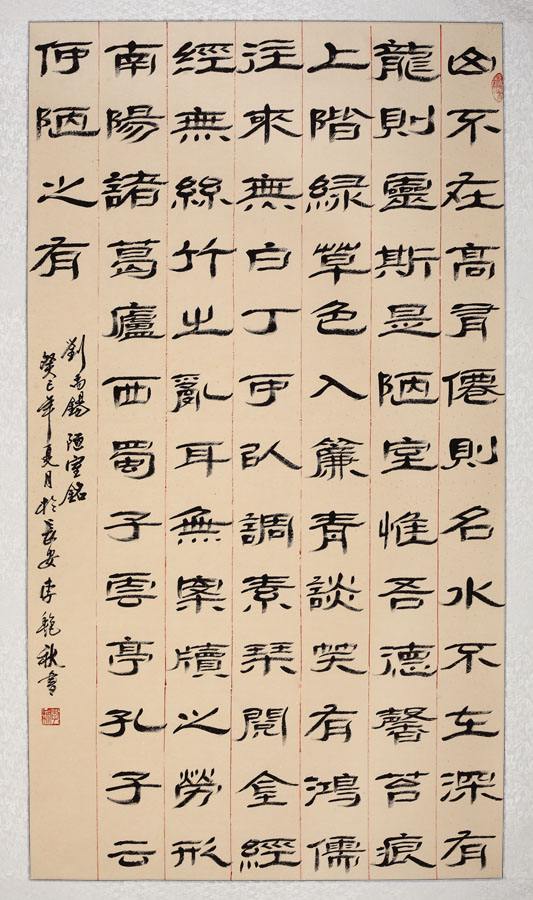 山不在高有僊則名水不在深有
龍則靈斯是陋室惟吾德馨苔痕
上階綠草色入簾青談笑有鴻儒
往來無白丁可以調素琴閱金經
經無絲竹之亂耳無案牘之勞形
南陽諸葛廬西蜀子雲亭孔子云
何陋之有
劉禹錫 陋室銘
癸巳年夏月於長安李秋書